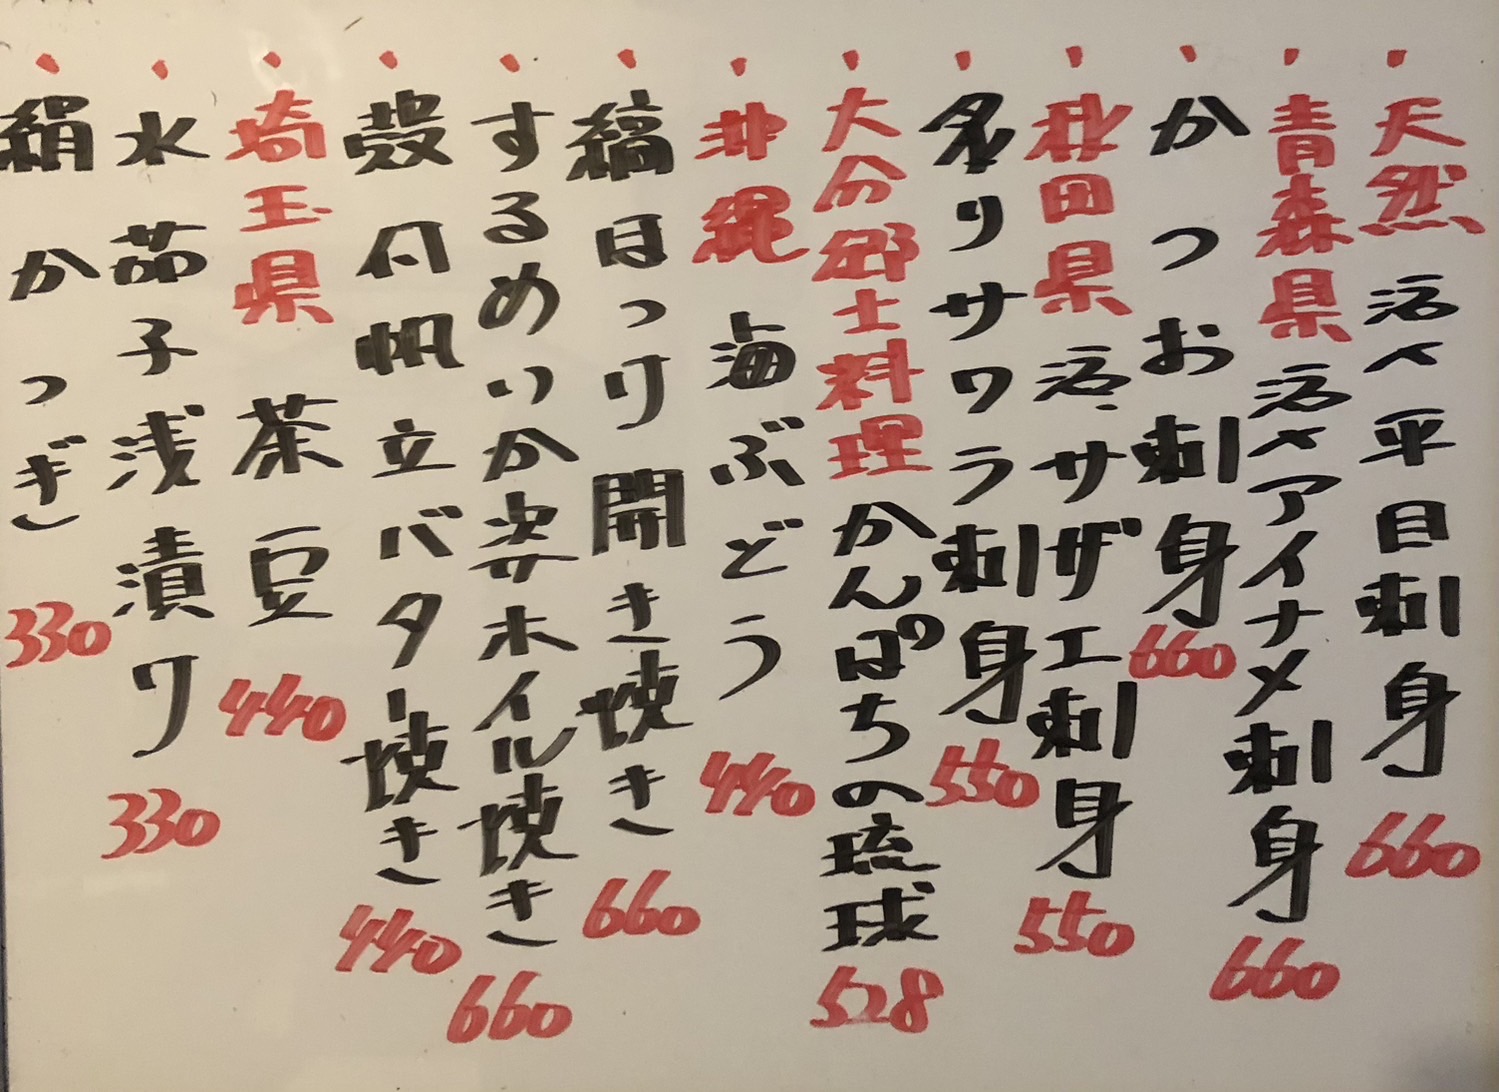 天然 活〆平目刺身 660
青森県 活〆アイナメ刺身 660
かつお刺身 660
秋田県 活〆サザエ刺身 550
炙りサワラ刺身 550
大分郷土料理 かんぱちの琉球 528
沖縄 海ぶどう 440
縞ほっけ開き焼き 660
するめいか姿ホイル焼き 660
殻付帆立バター焼き 440
埼玉県 茶豆 440
水茄子浅漬け 330
絹かつぎ 330